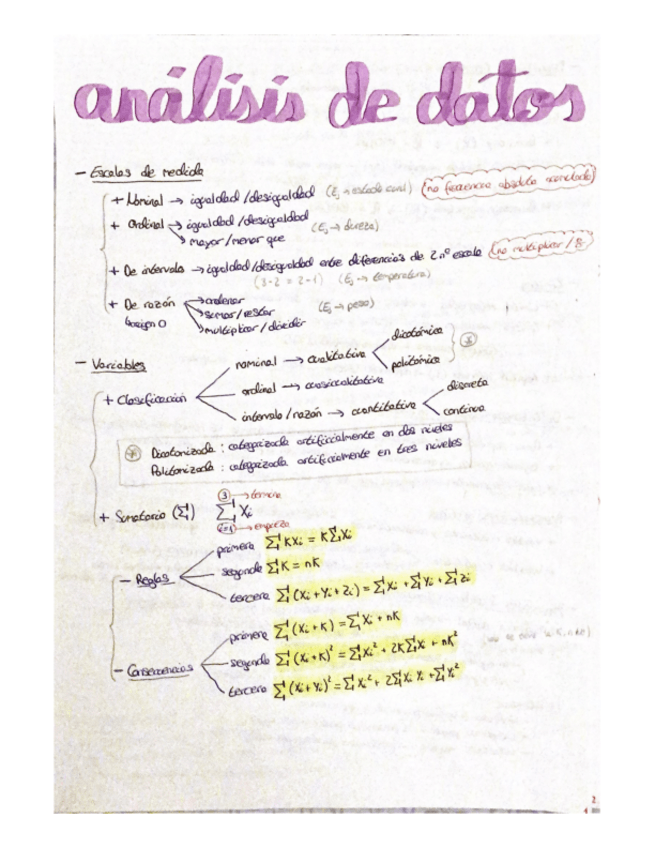 análisis de datos
- Escalas de medida
+ Nominal → igualdad/desigualdad (Ej → estado civil) (no frecuencia absoluta acumulada)
+ Ordinal → igualdad/desigualdad (Ej → dureza)
→ mayor/menor que
+ De intervalo → igualdad/desigualdad entre diferencias de 2 nº escala (no multiplicar/÷)
(3-2 = 2-1) (Ej → temperatura)
+ De razón → ordenar (Ej → peso)
→ sumar/restar
→ multiplicar/dividir
- Variables
+ Clasificación
nominal → cualitativa
dicotómica
politómica
ordinal → cuasicualitativa
intervalo/razón → cuantitativa
discreta
continua
Dicotomizada : categorizada artificialmente en dos niveles
Politomizada : categorizada artificialmente en tres niveles
+ Sumatorio (Σ)
③ → termina
Σ Xi
i=1 → empieza
- Reglas
primera Σ KXi = KΣXi
segunda ΣK = nK
tercera Σ(Xi + Yi + Zi) = ΣXi + ΣYi + ΣZi
- Consecuencias
primera Σ(Xi + K) = ΣXi + nK
segunda Σ(Xi + K)² = ΣXi² + 2KΣXi + nK²
tercera Σ(Xi + Yi)² = ΣXi² + 2ΣXi Yi + ΣYi²
2